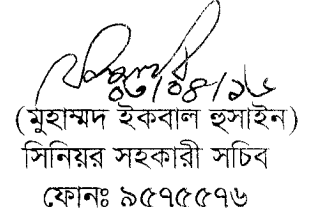 ০৩/০৪/১৬
(মুহাম্মদ ইকবাল হুসাইন)
সিনিয়র সহকারী সচিব
ফোনঃ ৯৫৭৫৫৭৬